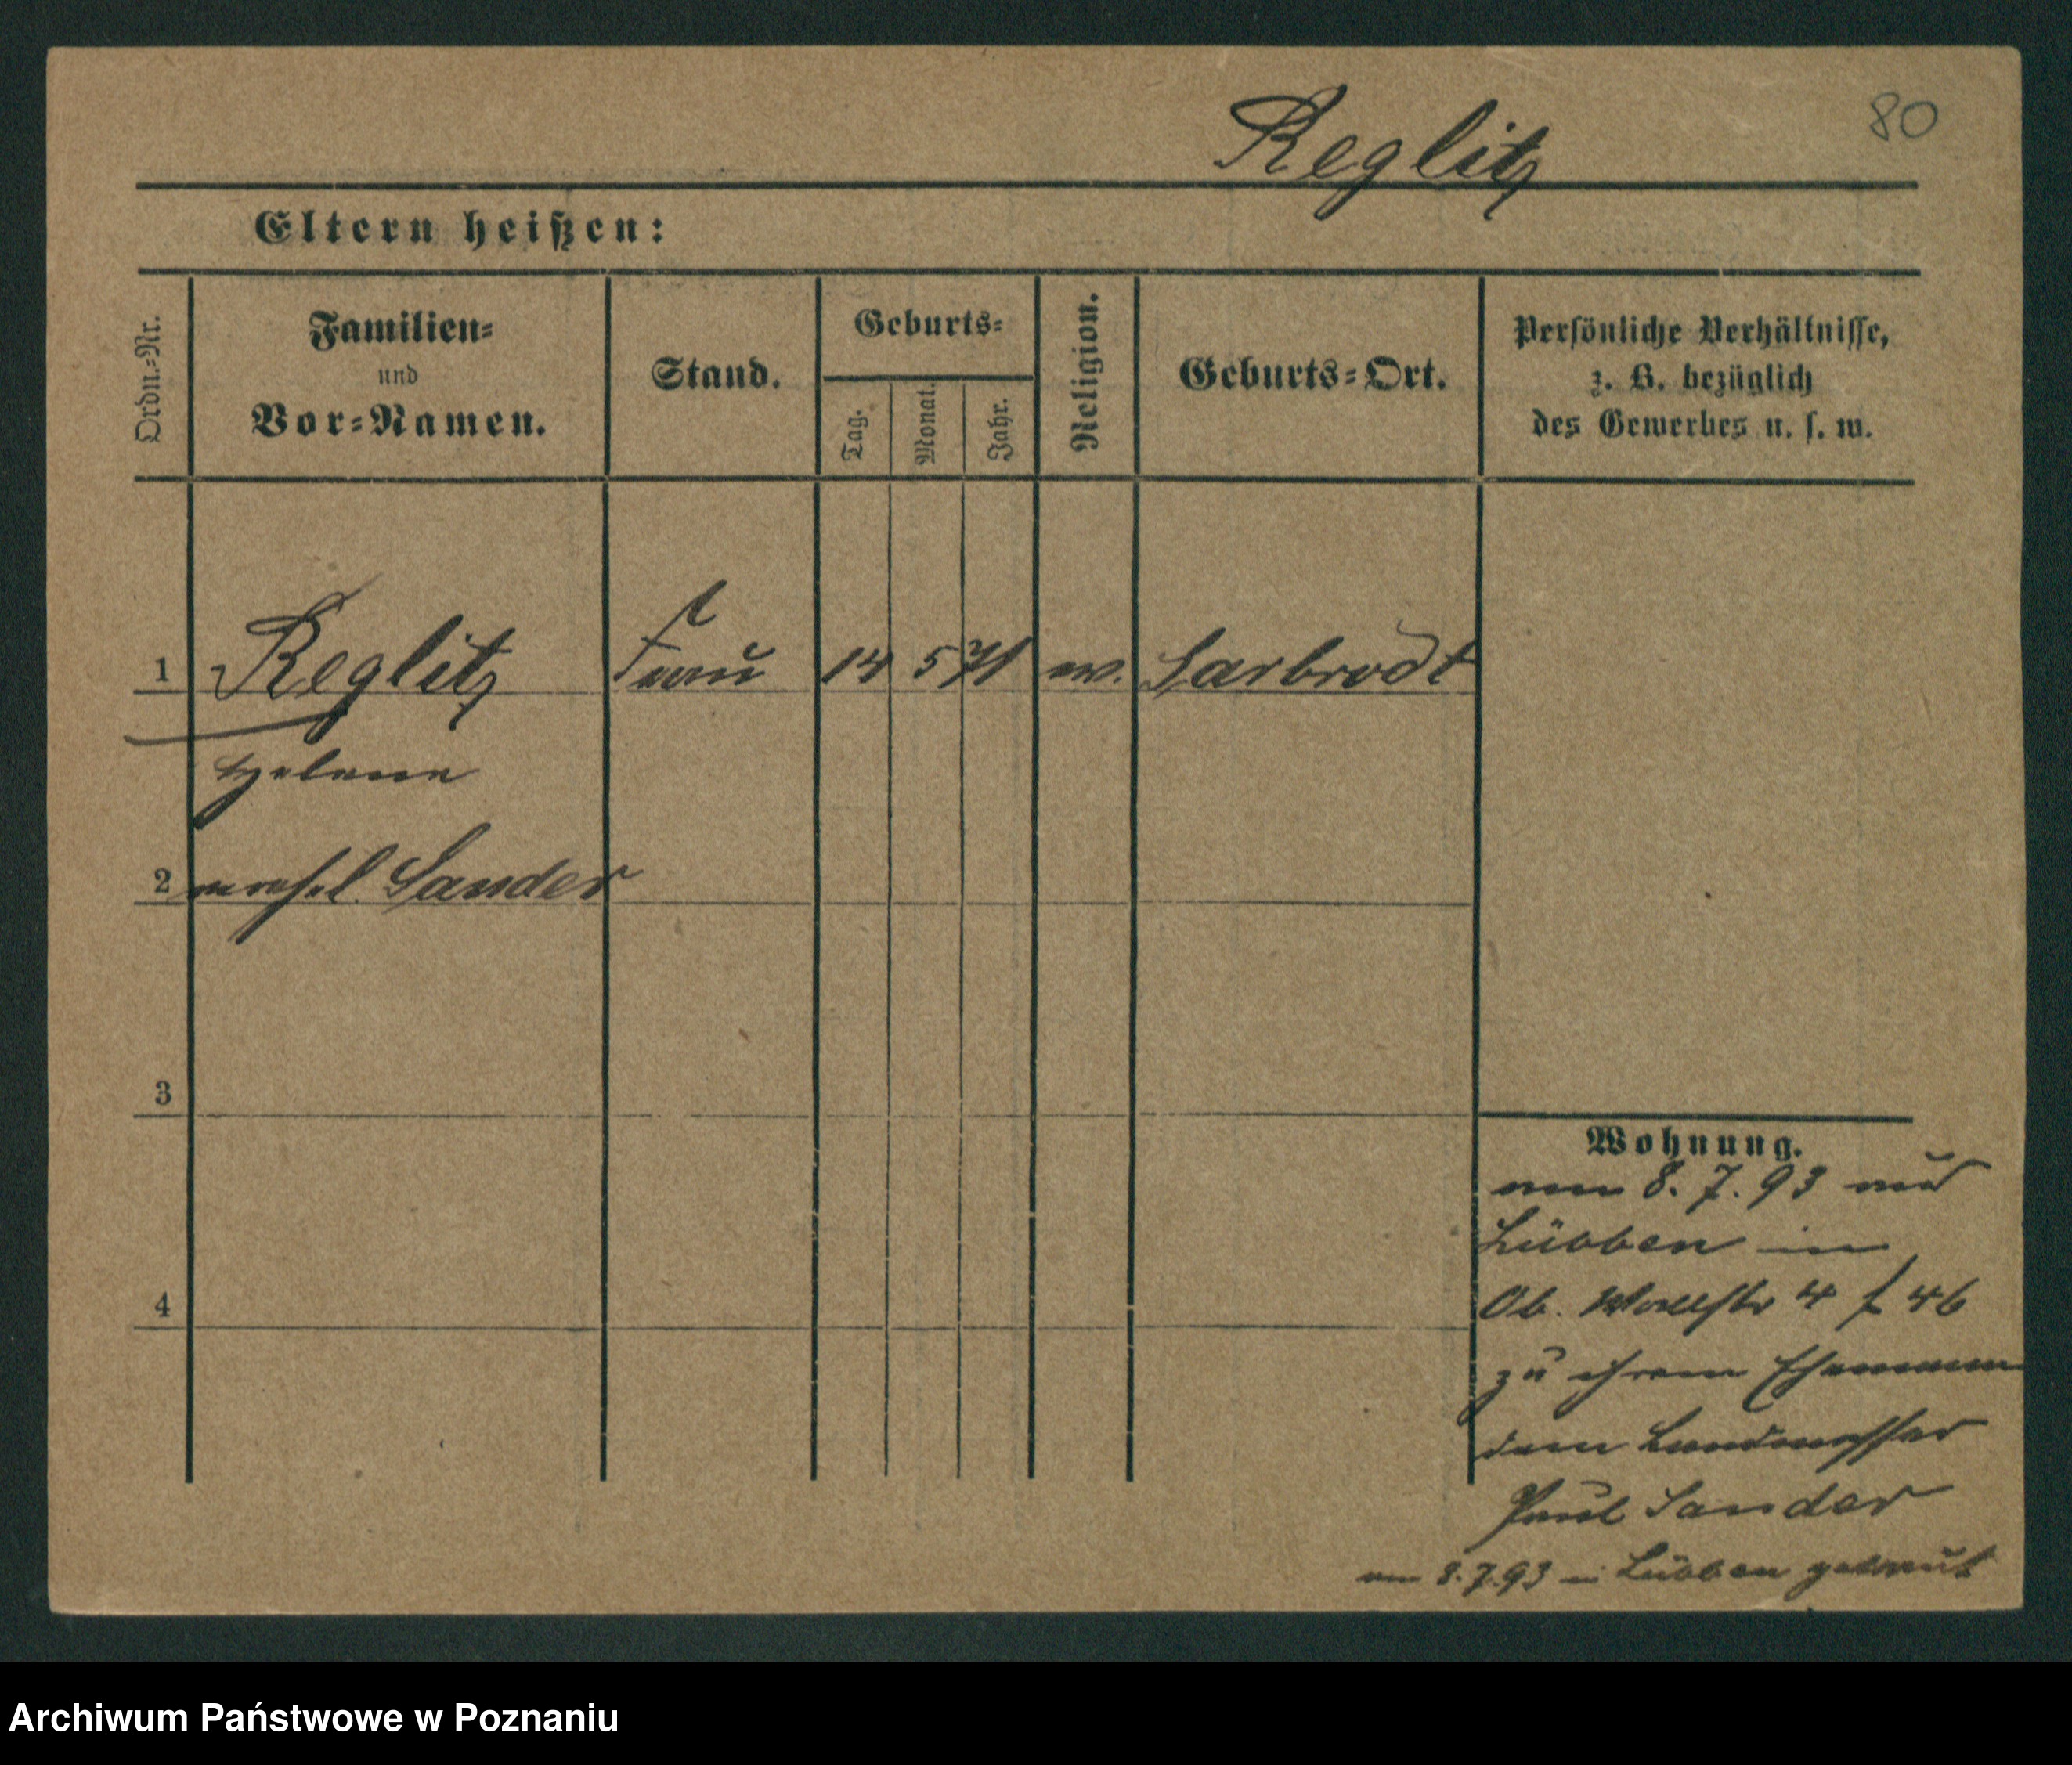 Reglitz
80
Eltern heißen:
Ordn.=Nr.
Familien=
und
Vor=Namen.
Stand.
Geburts=
Tag.
Monat.
Jahr.
Religion.
Geburts=Ort.
Persönliche Verhältnisse,
z. B. bezüglich
des Gewerbes u. s. w.
1 Reglitz Frau 14 5 71 ev. Sarbrodt
Helene
2 verehel. Sander
3
Wohnung.
am 8. 7. 93 aus
Lübben in
4
Ob. Wallstr 4 46
zu ihrem Ehemann
dem Landmesser
Paul Sander
am 8.7.93 in Lübben getraut
Archiwum Państwowe w Poznaniu